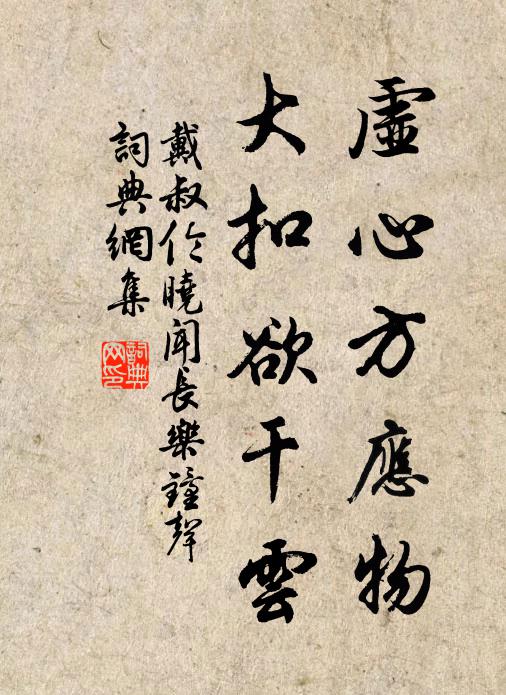 虛心方應物
大扣欲干雲
戴叔伦曉聞長樂鐘聲
詞典網集
詞典網印